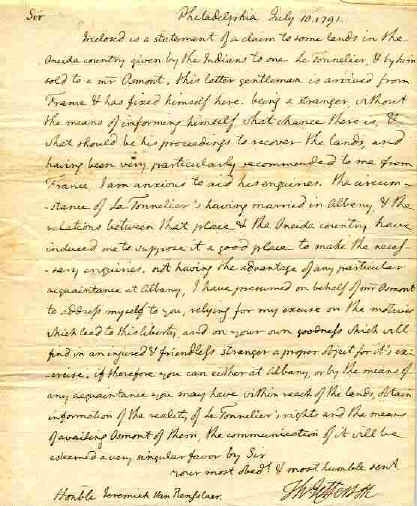 Sir Philadelphia July 10. 1791.
Inclosed is a statement of a claim to some lands in the
Oneida country given by the Indians to one Le Tonnelier, & by him
sold to a mr Osmont, this latter gentleman is arrived from
France & has fixed himself here. being a stranger, without
the means of informing himself what chance there is, &
what should be his proceedings to recover the lands, and
having been very particularly recommended to me from
France, I am anxious to aid his enquiries. the circum-
-stance of Le Tonnelier's having married in Albany, & the
relations between that place & the Oneida country have
induced me to suppose it a good place to make the neces-
-sary enquiries. not having the advantage of any particular
acquaintance at Albany, I have presumed on behalf of mr Osmont
to address myself to you, relying for my excuse on the motives
which lead to this liberty, and on your own goodness which will
find in an injured & friendless stranger a proper object for it's ex-
-ercise. if therefore you can either at Albany, or by the means of
any acquaintance you may have within reach of the lands, obtain
information of the reality of Le Tonnelier's rights and the means
of availing Osmont of them, the communication of it will be
esteemed a very singular favor by Sir
your most obedt. & most humble servt
Th: Jefferson
Honble Jeremiah Van Renslaer.